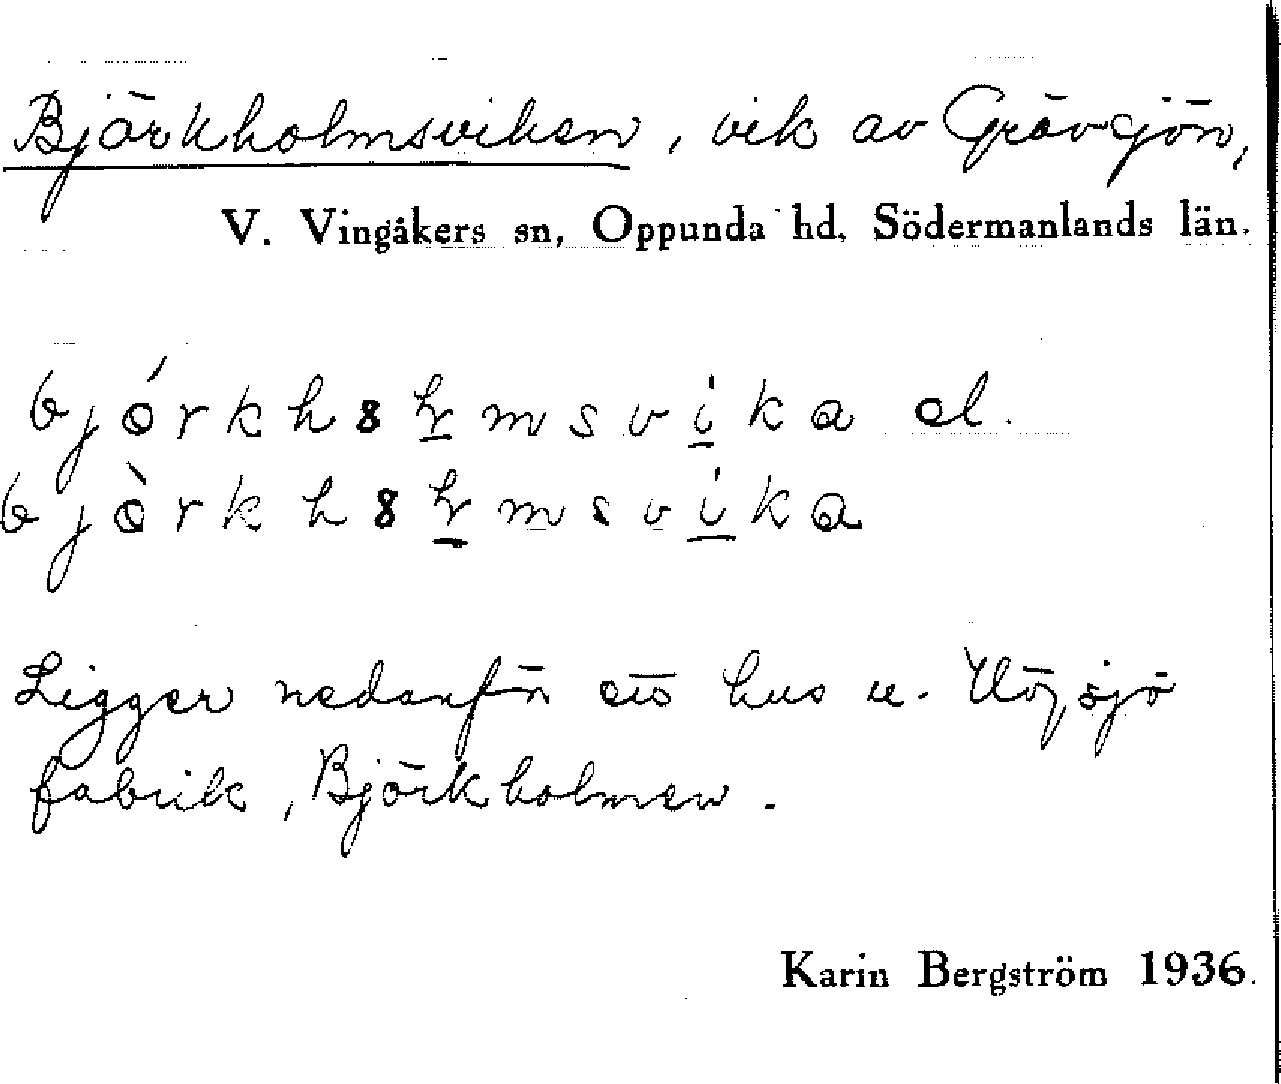 Björkholmsviken, vik av Grövsjön,
V. Vingåkers sn, Oppunda hd. Södermanlands län.
bjórkh8lmsvi̲ka el.
bjòrkh8lmsvi̲ka
Ligger nedanför ett hus u. Högsjö
fabrik, Björkholmen.
Karin Bergström 1936.